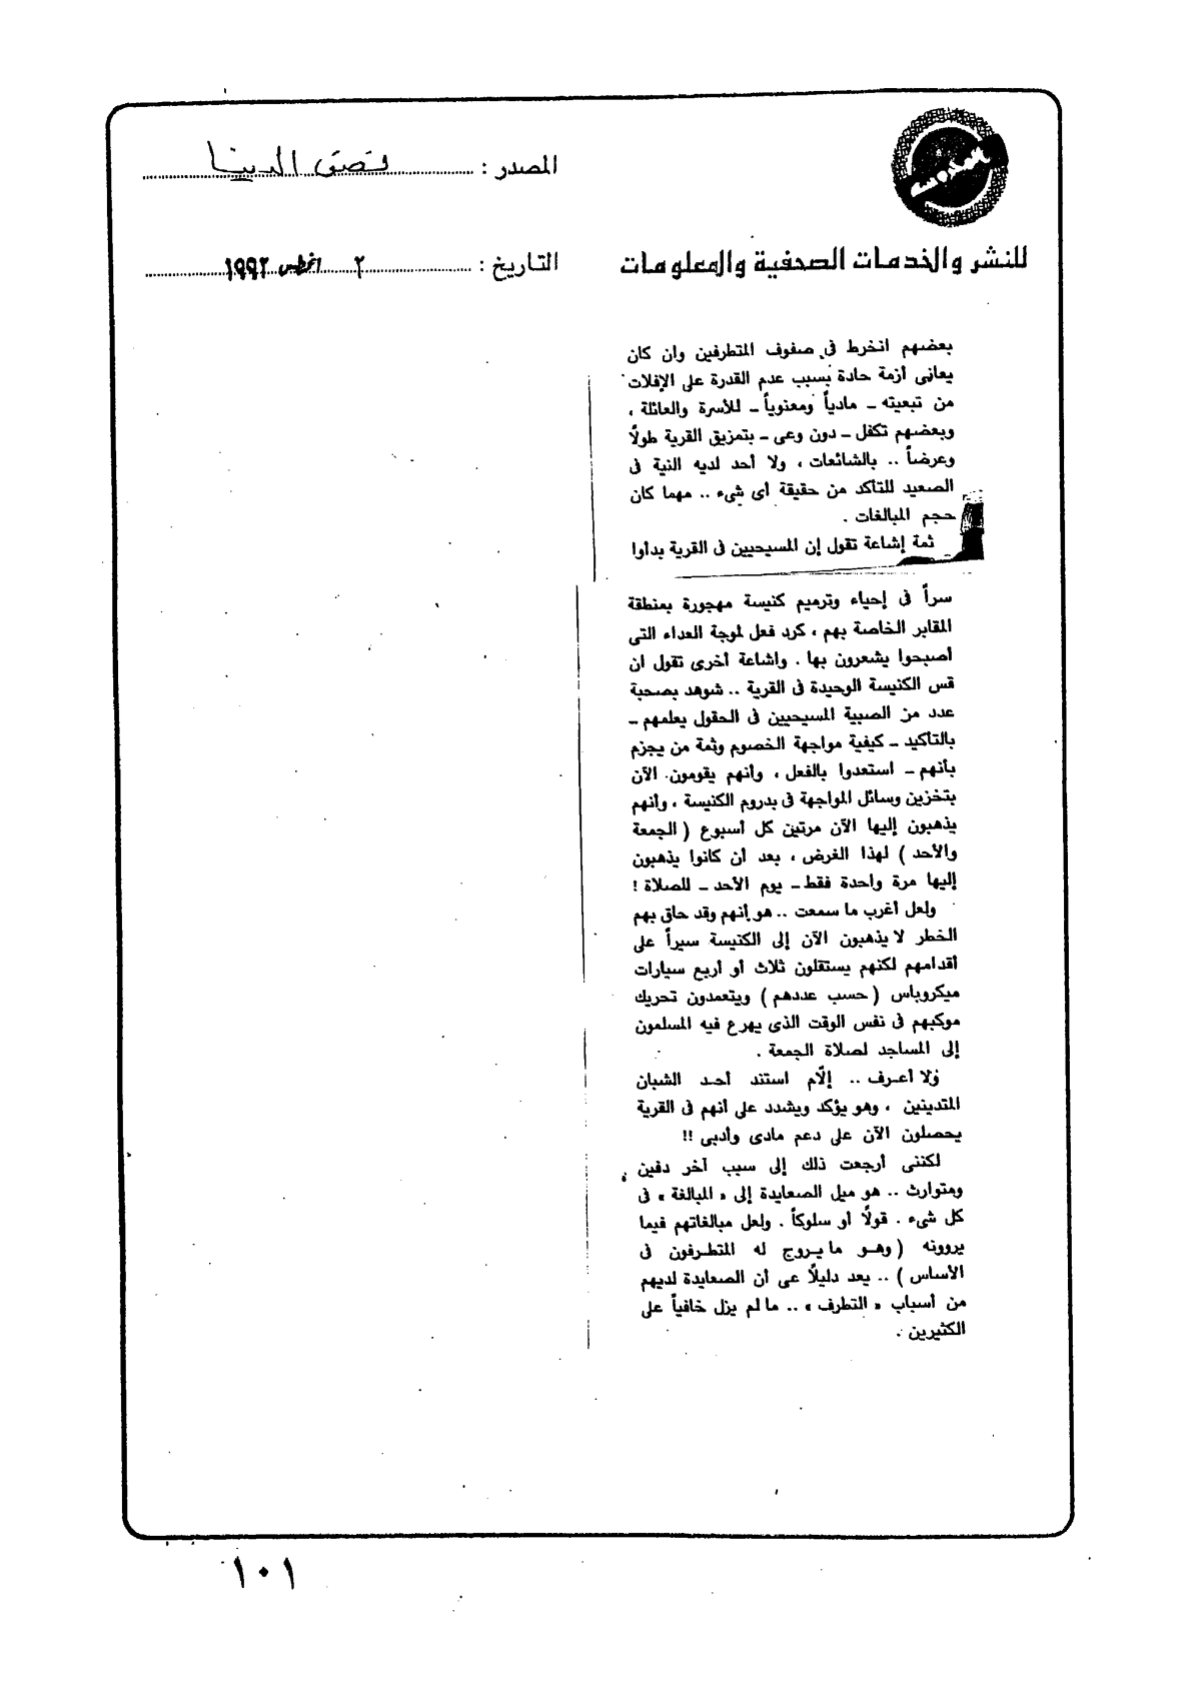 المصدر : نصف الدنيا
للنشر والخدمات الصحفية والمعلومات
التاريخ : ٢ اغسطس ١٩٩٢
بعضهم انخرط فى صفوف المتطرفين وان كان
يعانى أزمة حادة بسبب عدم القدرة على الإفلات
من تبعيته ـ مادياً ومعنوياً ـ للأسرة والعائلة ،
وبعضهم تكفل ـ دون وعى ـ بتمزيق القرية طولًا
وعرضاً .. بالشائعات ، ولا أحد لديه النية فى
الصعيد للتأكد من حقيقة أى شىء .. مهما كان
حجم المبالغات .
ثمة إشاعة تقول إن المسيحيين فى القرية بدأوا
سراً فى إحياء وترميم كنيسة مهجورة بمنطقة
المقابر الخاصة بهم ، كرد فعل لموجة العداء التى
أصبحوا يشعرون بها . واشاعة أخرى تقول ان
قس الكنيسة الوحيدة فى القرية .. شوهد بصحبة
عدد من الصبية المسيحيين فى الحقول يعلمهم ـ
بالتأكيد ـ كيفية مواجهة الخصوم وثمة من يجزم
بأنهم ـ استعدوا بالفعل ، وأنهم يقومون الآن
بتخزين وسائل المواجهة فى بدروم الكنيسة ، وأنهم
يذهبون إليها الآن مرتين كل أسبوع ( الجمعة
والأحد ) لهذا الغرض ، بعد أن كانوا يذهبون
إليها مرة واحدة فقط ـ يوم الأحد ـ للصلاة !
ولعل أغرب ما سمعت .. هو أنهم وقد حاق بهم
الخطر لا يذهبون الآن إلى الكنيسة سيراً على
أقدامهم لكنهم يستقلون ثلاث أو أربع سيارات
ميكروباس ( حسب عددهم ) ويتعمدون تحريك
موكبهم فى نفس الوقت الذى يهرع فيه المسلمون
إلى المساجد لصلاة الجمعة .
ولا أعرف .. إلّام استند أحد الشبان
المتدينين ، وهو يؤكد ويشدد على أنهم فى القرية
يحصلون الآن على دعم مادى وأدبى !!
لكننى أرجعت ذلك إلى سبب آخر دفين ،
ومتوارث .. هو ميل الصعايدة إلى « المبالغة » فى
كل شىء . قولًا أو سلوكاً . ولعل مبالغاتهم فيما
يروونه ( وهو ما يروج له المتطرفون فى
الأساس ) .. يعد دليلًا عى أن الصعايدة لديهم
من أسباب « التطرف » .. ما لم يزل خافياً على
الكثيرين .
١٠١